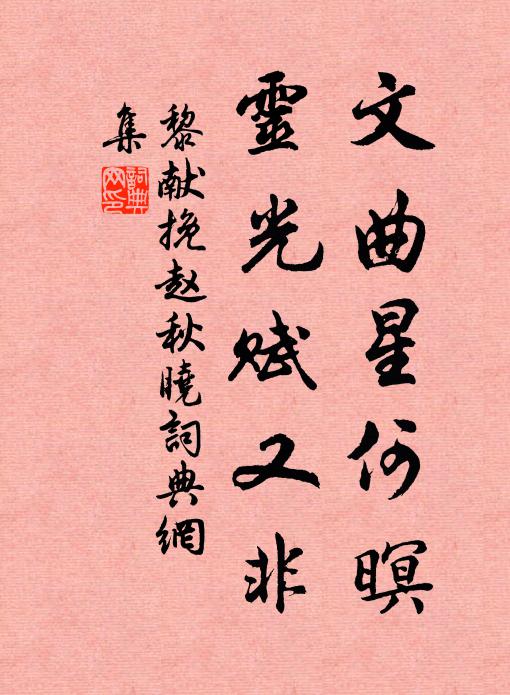 文曲星何暝
靈光赋又非
黎献挽赵秋曉詞典網
集
詞典
网印